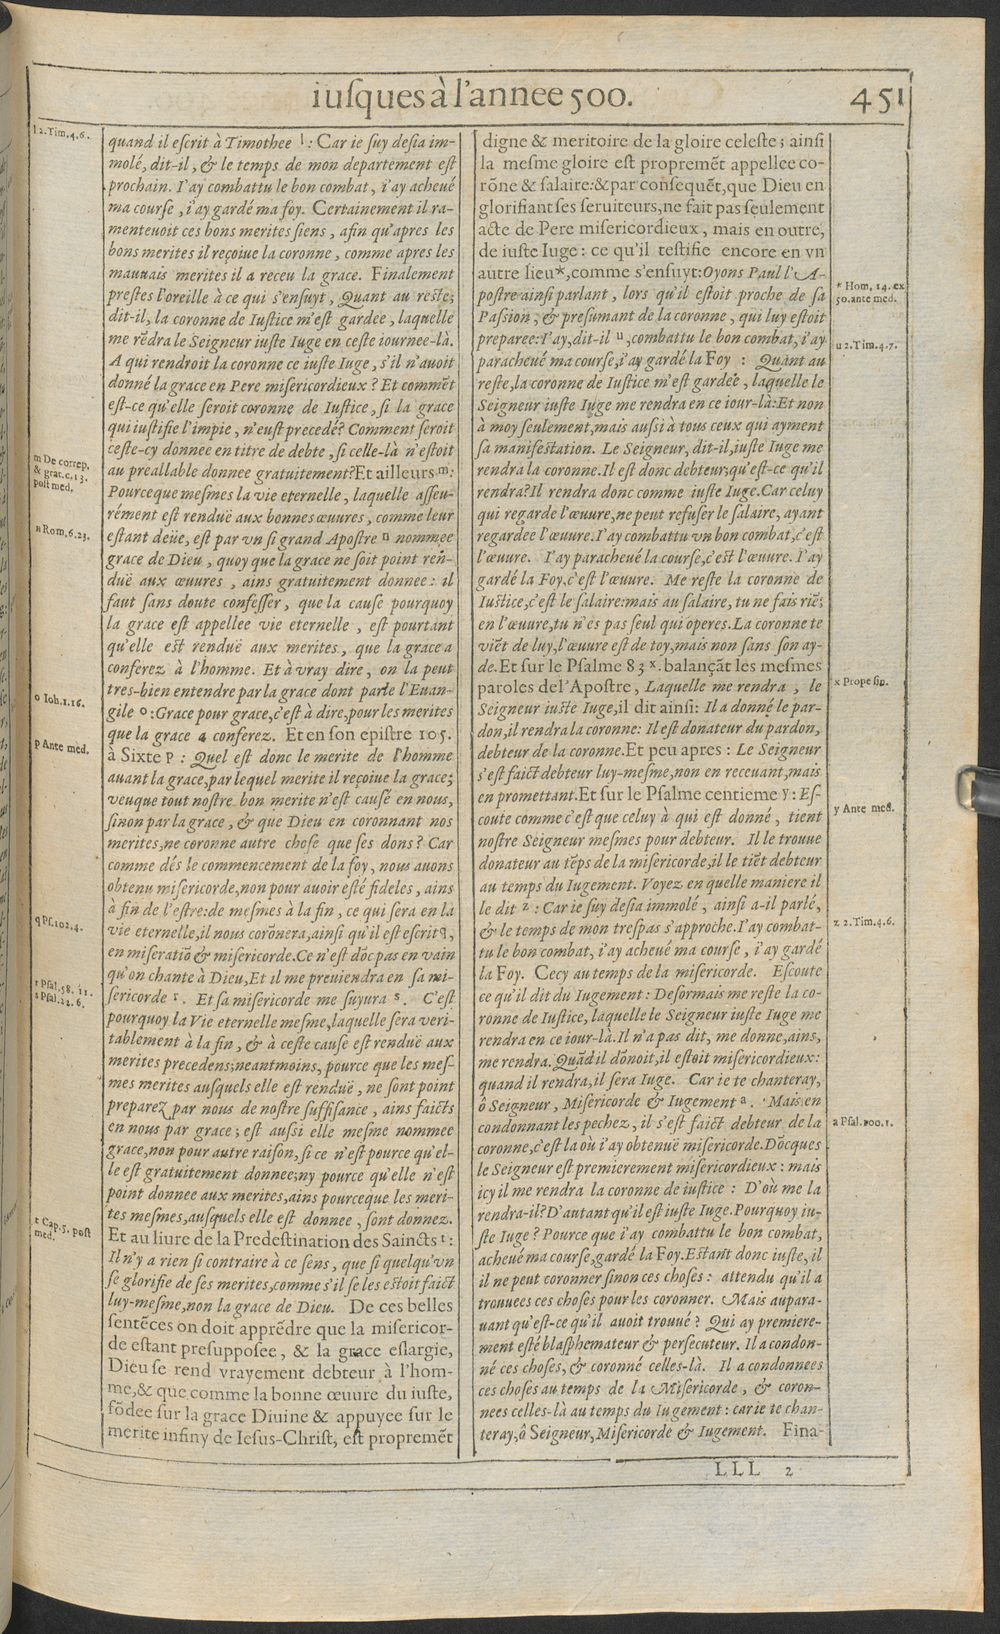 iusques à l'annee 500. 451
l 2. Tim. 4. 6.
quand il escrit à Timothee l : Car ie suy desia im-
molé, dit-il, & le temps de mon departement est
prochain. I'ay combattu le bon combat, i'ay acheué
ma course, i'ay gardé ma foy. Certainement il ra-
menteuoit ces bons merites siens, afin qu'apres les
bons merites il reçoiue la coronne, comme apres les
mauuais merites il a receu la grace. Finalement
prestes l'oreille à ce qui s'ensuyt, Quant au reste,
dit-il, la coronne de Iustice m'est gardee, laquelle
me rēdra le Seigneur iuste Iuge en ceste iournee-là.
A qui rendroit la coronne ce iuste Iuge, s'il n'auoit
donné la grace en Pere misericordieux? Et commēt
est-ce qu'elle seroit coronne de Iustice, si la grace
qui iustifie l'impie, n'eust precedé? Comment seroit
ceste-cy donnee en titre de debte, si celle-là n'estoit
au preallable donnee gratuitement? Et ailleurs m:
m De correp.
& grat. c. 13.
post med.
Pource que mesmes la vie eternelle, laquelle asseu-
rément est renduë aux bonnes œuures, comme leur
estant deüe, est par vn si grand Apostre n nommee
n Rom. 6. 23.
grace de Dieu, quoy que la grace ne soit point ren-
duë aux œuures, ains gratuitement donnee: il
faut sans doute confesser, que la cause pourquoy
la grace est appellee vie eternelle, est pourtant
qu'elle est renduë aux merites, que la grace a
conferez à l'homme. Et à vray dire, on la peut
tres-bien entendre par la grace dont parle l'Euan-
gile o: Grace pour grace, c'est à dire, pour les merites
o Ioh. 1. 16.
que la grace a conferez. Et en son epistre 105.
à Sixte p : Quel est donc le merite de l'homme
p Ante med.
auant la grace, par lequel merite il reçoiue la grace;
veuque tout nostre bon merite n'est causé en nous,
sinon par la grace, & que Dieu en coronnant nos
merites, ne coronne autre chose que ses dons? Car
comme dés le commencement de la foy, nous auons
obtenu misericorde, non pour auoir esté fideles, ains
à fin de l'estre: de mesmes à la fin, ce qui sera en la
vie eternelle, il nous corōnera, ainsi qu'il est escrit q,
q Ps. 102. 4.
en miseratiō & misericorde. Ce n'est dōc pas en vain
qu'on chante à Dieu, Et il me preuiendra en sa mi-
sericorde r. Et sa misericorde me suyura s. C'est
r Psal. 58. 11.
s Psal. 22. 6.
pourquoy la Vie eternelle mesme, laquelle sera veri-
tablement à la fin, & à ceste cause est renduë aux
merites precedens; neantmoins, pource que les mes-
mes merites ausquels elle est renduë, ne sont point
preparez par nous de nostre suffisance, ains faicts
en nous par grace; est aussi elle mesme nommee
grace, non pour autre raison, si ce n'est pource qu'el-
le est gratuitement donnee; ny pource qu'elle n'est
point donnee aux merites, ains pource que les meri-
tes mesmes, ausquels elle est donnee, sont donnez.
Et au liure de la Predestination des Saincts t :
t Cap. 5. post
med.
Il n'y a rien si contraire à ce sens, que si quelqu'vn
se glorifie de ses merites, comme s'il se les estoit faict
luy-mesme, non la grace de Dieu. De ces belles
sentēces on doit apprēdre que la misericor-
de estant presupposee, & la grace eslargie,
Dieu se rend vrayement debteur à l'hom-
me, & que comme la bonne œuure du iuste,
fōdee sur la grace Diuine & appuyee sur le
merite infiny de Iesus-Christ, est propremēt
digne & meritoire de la gloire celeste; ainsi
la mesme gloire est propremēt appellee co-
rōne & salaire: & par consequēt, que Dieu en
glorifiant ses seruiteurs, ne fait pas seulement
acte de Pere misericordieux, mais en outre,
de iuste Iuge: ce qu'il testifie encore en vn
autre lieu*, comme s'ensuyt: Oyons Paul l'A-
* Hom. 14. ex
50. ante med.
postre ainsi parlant, lors qu'il estoit proche de sa
Passion, & presumant de la coronne, qui luy estoit
preparee: I'ay, dit-il u, combattu le bon combat, i'ay
u 2. Tim. 4. 7.
paracheué ma course, i'ay gardé la Foy : Quant au
reste, la coronne de Iustice m'est gardee, laquelle le
Seigneur iuste Iuge me rendra en ce iour-là: Et non
à moy seulement, mais aussi à tous ceux qui ayment
sa manifestation. Le Seigneur, dit-il, iuste Iuge me
rendra la coronne. Il est donc debteur; qu'est-ce qu'il
rendra? Il rendra donc comme iuste Iuge. Car celuy
qui regarde l'œuure, ne peut refuser le salaire, ayant
regardee l'œuure. I'ay combattu vn bon combat, c'est
l'œuure. I'ay paracheué la course, c'est l'œuure. I'ay
gardé la Foy, c'est l'œuure. Me reste la coronne de
Iustice, c'est le salaire: mais au salaire, tu ne fais riē;
en l'œuure, tu n'es pas seul qui operes. La coronne te
viēt de luy, l'œuure est de toy, mais non sans son ay-
de. Et sur le Psalme 83 x. balançāt les mesmes
x Prope fin.
paroles de l'Apostre, Laquelle me rendra, le
Seigneur iuste Iuge, il dit ainsi: Il a donné le par-
don, il rendra la coronne: Il est donateur du pardon,
debteur de la coronne. Et peu apres : Le Seigneur
s'est faict debteur luy-mesme, non en receuant, mais
en promettant. Et sur le Psalme centieme y : Es-
y Ante med.
coute comme c'est que celuy à qui est donné, tient
nostre Seigneur mesmes pour debteur. Il le trouue
donateur au tēps de la misericorde, il le tiēt debteur
au temps du Iugement. Voyez en quelle maniere il
le dit z : Car ie suy desia immolé, ainsi a-il parlé,
z 2. Tim. 4. 6.
& le temps de mon trespas s'approche. I'ay combat-
tu le bon combat, i'ay acheué ma course, i'ay gardé
la Foy. Cecy au temps de la misericorde. Escoute
ce qu'il dit du Iugement: Desormais me reste la co-
ronne de Iustice, laquelle le Seigneur iuste Iuge me
rendra en ce iour-là. Il n'a pas dit, me donne, ains,
me rendra. Quād il dōnoit, il estoit misericordieux:
quand il rendra, il sera Iuge. Car ie te chanteray,
ô Seigneur, Misericorde & Iugement a. Mais en
condonnant les pechez, il s'est faict debteur de la
a Psal. 100. 1.
coronne, c'est la où i'ay obtenuë misericorde. Dōcques
le Seigneur est premierement misericordieux : mais
icy il me rendra la coronne de iustice : D'où me la
rendra-il? D'autant qu'il est iuste Iuge. Pourquoy iu-
ste Iuge? Pource que i'ay combattu le bon combat,
acheué ma course, gardé la Foy. Estant donc iuste, il
il ne peut coronner sinon ces choses: attendu qu'il a
trouuees ces choses pour les coronner. Mais aupara-
uant qu'est-ce qu'il auoit trouué? Qui ay premiere-
ment esté blasphemateur & persecuteur. Il a condon-
né ces choses, & coronné celles-là. Il a condonnees
ces choses au temps de la Misericorde, & coron-
nees celles-là au temps du Iugement: car ie te chan-
teray, ô Seigneur, Misericorde & Iugement. Fina-
LLL 2